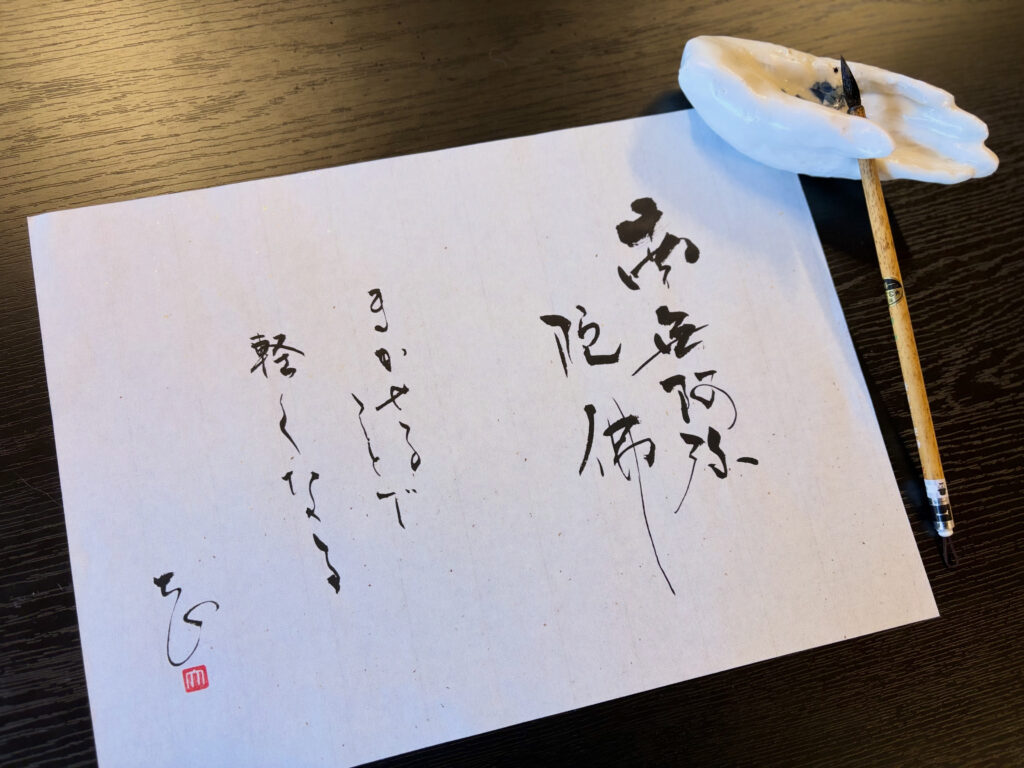 南無阿弥
陀佛
まかせる
ことで
軽くなる